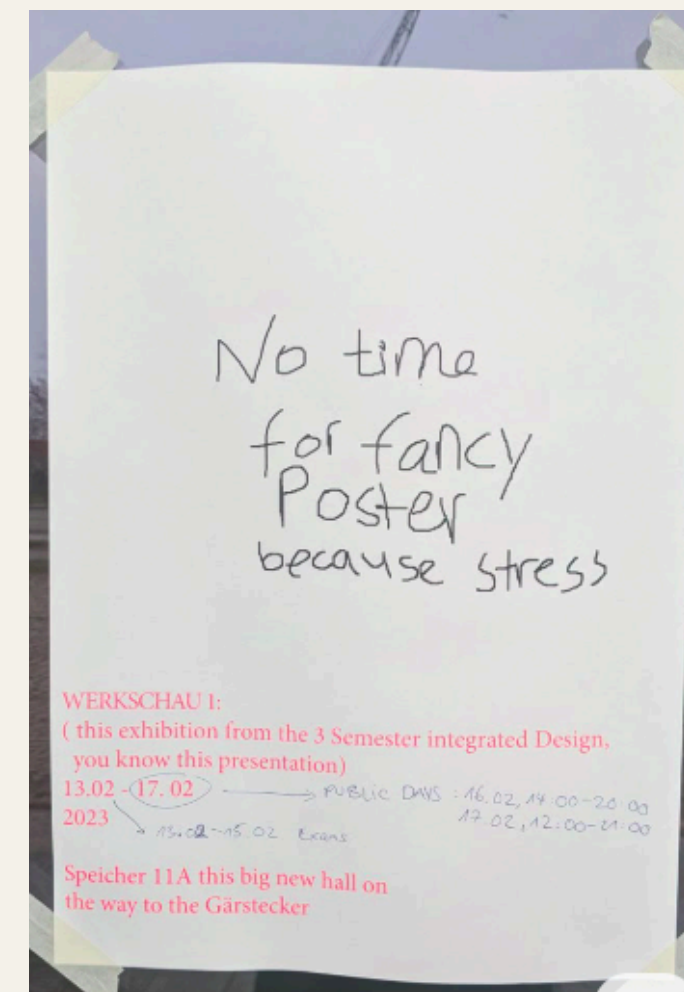 No time
for fancy
Poster
because stress
WERKSCHAU 1:
( this exhibition from the 3 Semester integrated Design,
you know this presentation)
13.02 - 17. 02 → PUBLIC DAYS : 16.02, 14:00-20:00
2023 17.02, 12:00-21:00
13.02-15.02 Exams
Speicher 11A this big new hall on
the way to the Gärstecker